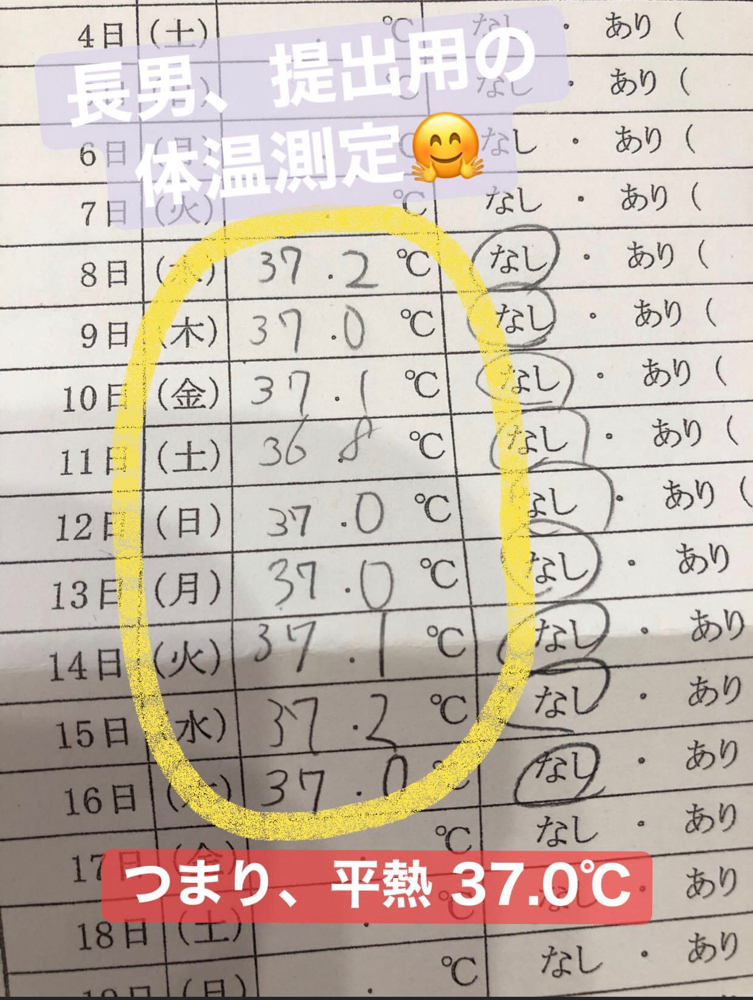 4日 (土) ℃ なし ・ あり (
長男、提出用の
℃ なし ・ あり (
体温測定🤗
6日 (月) なし ・ あり (
7日 (火) ℃ なし ・ あり (
8日 (水) 37.2 ℃ なし ・ あり (
9日 (木) 37.0 ℃ なし ・ あり (
10日 (金) 37.1 ℃ なし ・ あり (
11日 (土) 36.8 ℃ なし ・ あり (
12日 (日) 37.0 ℃ なし ・ あり (
13日 (月) 37.0 ℃ なし ・ あり
14日 (火) 37.1 ℃ なし ・ あり
15日 (水) 37.2 ℃ なし ・ あり
16日 (木) 37.0 ℃ なし ・ あり
17日 (金) ℃ なし ・ あり
つまり、平熱 37.0℃
18日 (土) ・ ℃ なし ・ あり
19日 (日) ・ ℃ なし ・ あり